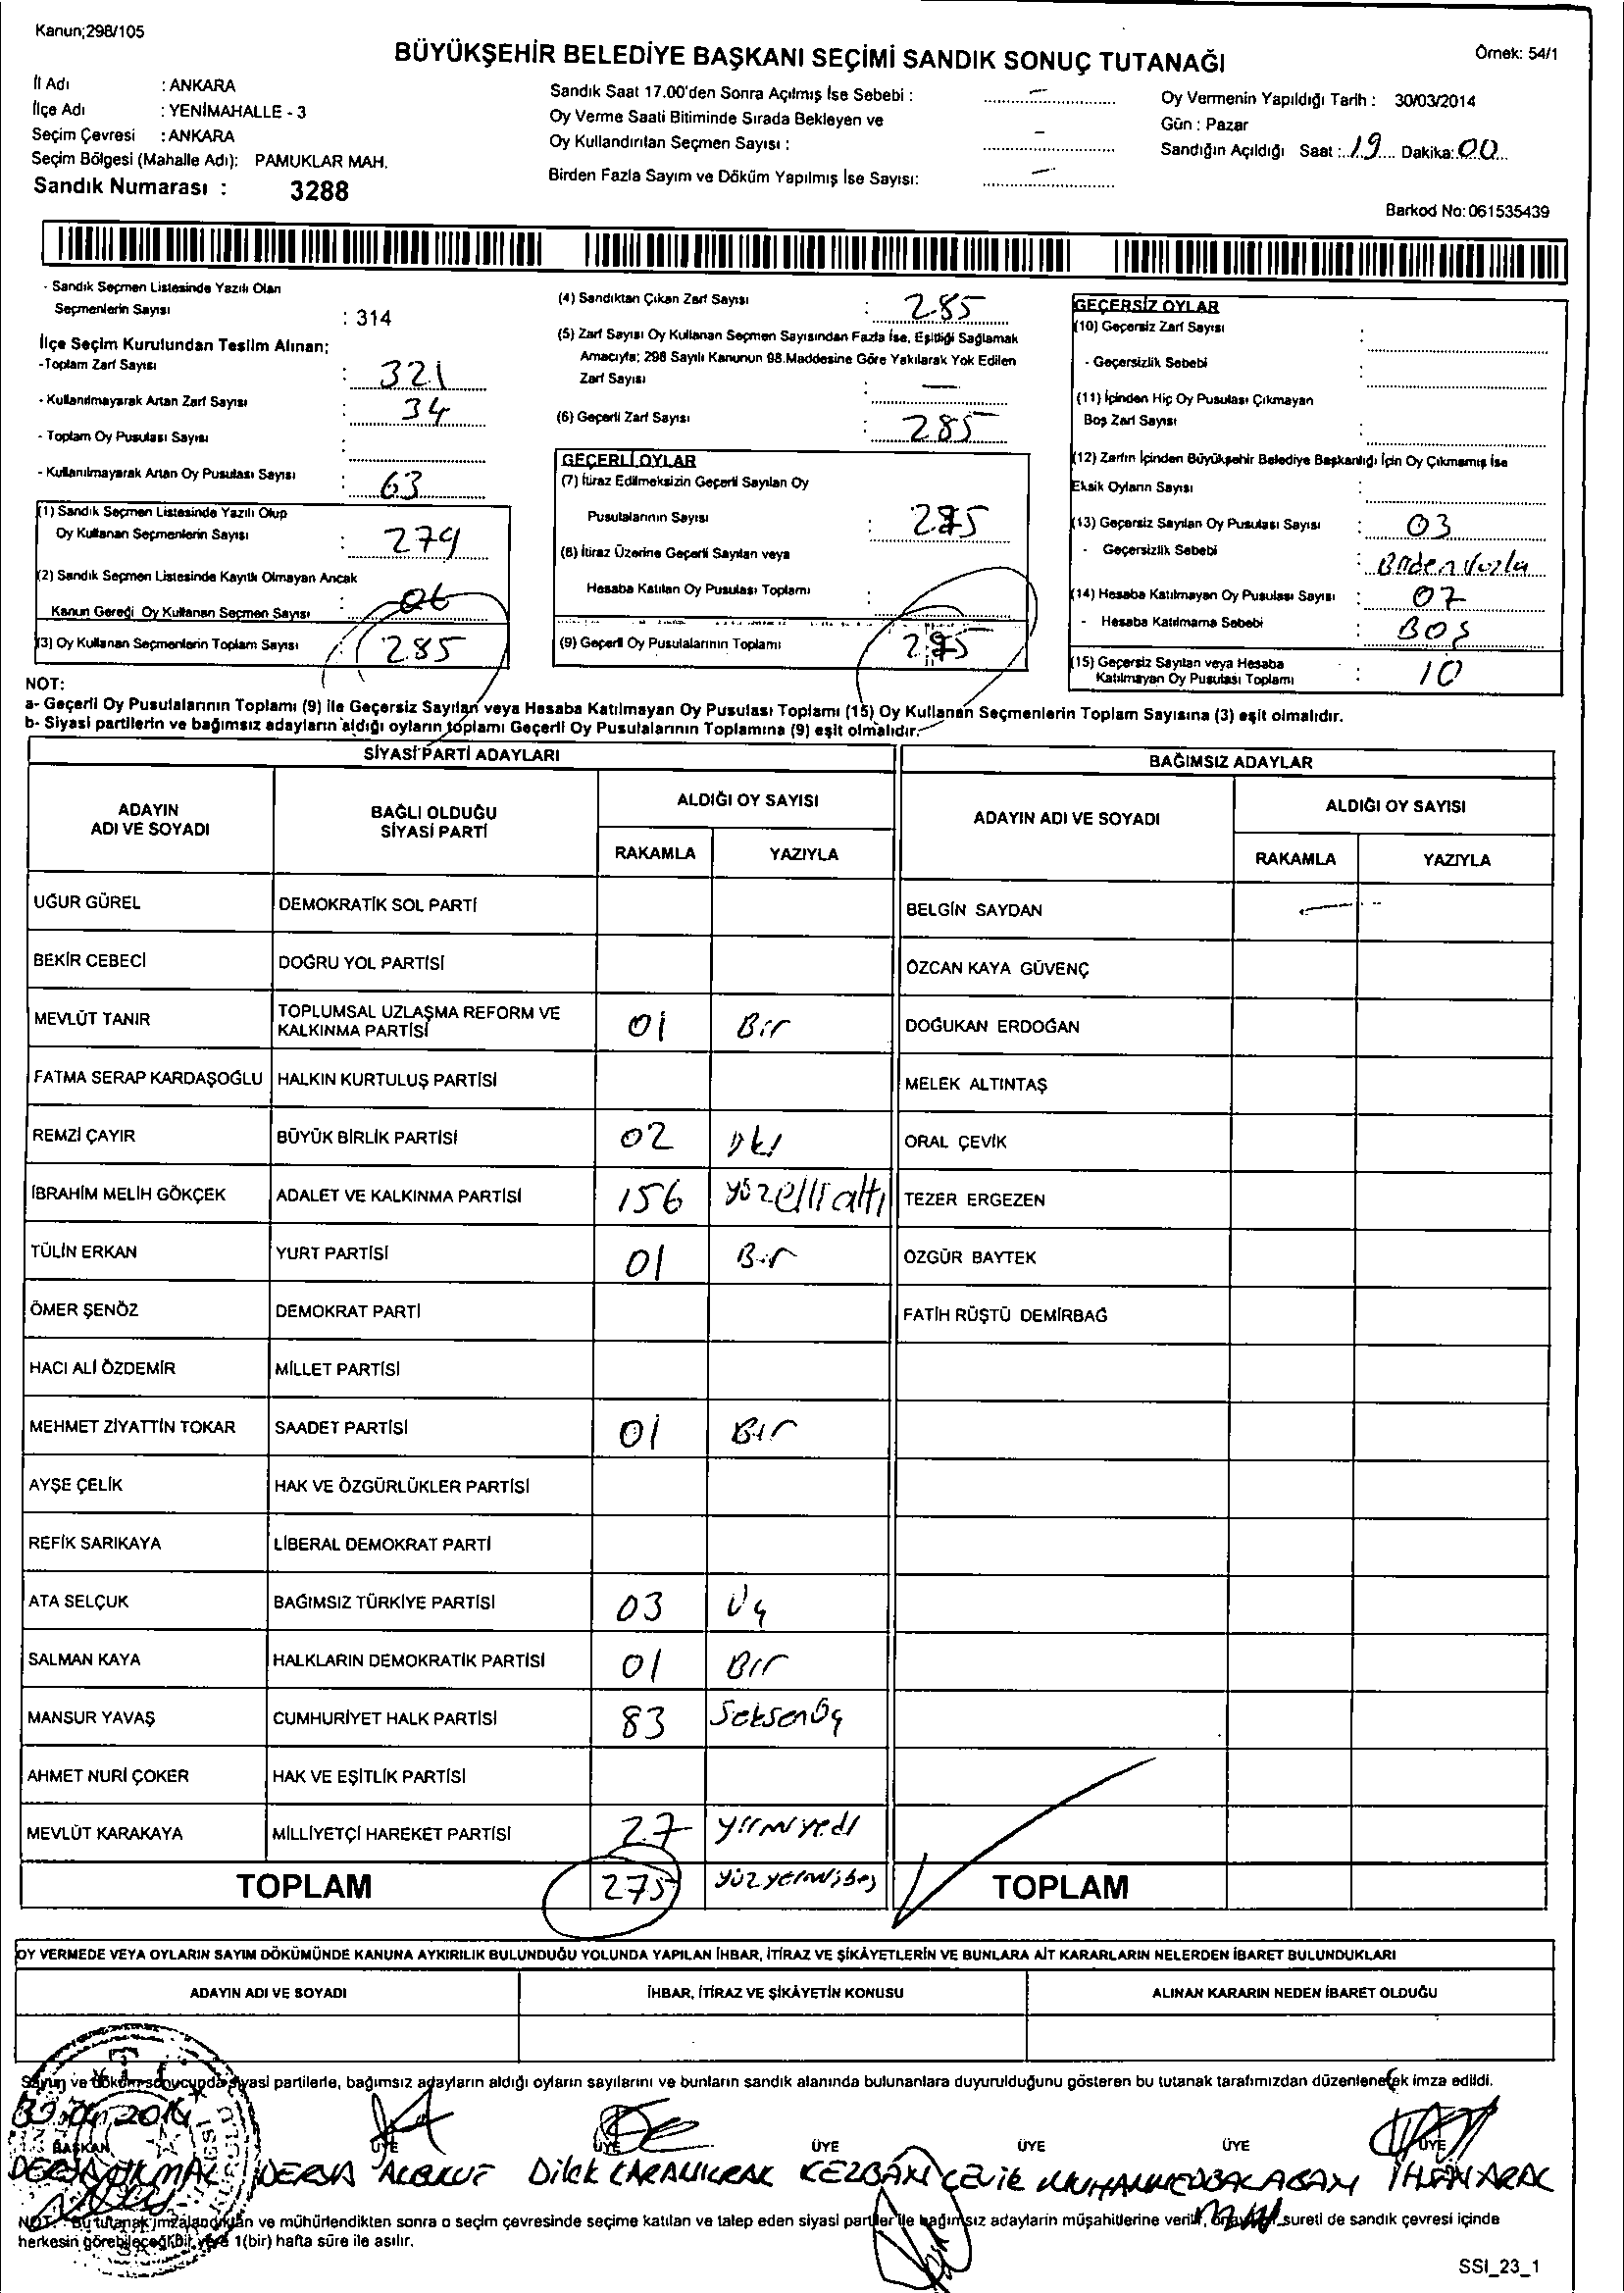 Kanun;298/105
BÜYÜKŞEHİR BELEDİYE BAŞKANI SEÇİMİ SANDIK SONUÇ TUTANAĞI
Örnek: 54/1
İl Adı : ANKARA
İlçe Adı : YENİMAHALLE - 3
Seçim Çevresi : ANKARA
Seçim Bölgesi (Mahalle Adı): PAMUKLAR MAH.
Sandık Numarası : 3288
Sandık Saat 17.00'den Sonra Açılmış İse Sebebi : —
Oy Verme Saati Bitiminde Sırada Bekleyen ve
Oy Kullandırılan Seçmen Sayısı : –
Birden Fazla Sayım ve Döküm Yapılmış İse Sayısı: —
Oy Vermenin Yapıldığı Tarih : 30/03/2014
Gün : Pazar
Sandığın Açıldığı Saat : 19 Dakika: 00
Barkod No: 061535439
- Sandık Seçmen Listesinde Yazılı Olan
Seçmenlerin Sayısı : 314
İlçe Seçim Kurulundan Teslim Alınan;
-Toplam Zarf Sayısı : 321
- Kullanılmayarak Artan Zarf Sayısı : 34
- Toplam Oy Pusulası Sayısı :
- Kullanılmayarak Artan Oy Pusulası Sayısı : 63
(1) Sandık Seçmen Listesinde Yazılı Olup
Oy Kullanan Seçmenlerin Sayısı : 279
(2) Sandık Seçmen Listesinde Kayıtlı Olmayan Ancak
Kanun Gereği Oy Kullanan Seçmen Sayısı : 06
(3) Oy Kullanan Seçmenlerin Toplam Sayısı : 285
(4) Sandıktan Çıkan Zarf Sayısı : 285
(5) Zarf Sayısı Oy Kullanan Seçmen Sayısından Fazla İse, Eşitliği Sağlamak
Amacıyla; 298 Sayılı Kanunun 98.Maddesine Göre Yakılarak Yok Edilen
Zarf Sayısı : —
(6) Geçerli Zarf Sayısı : 285
GEÇERLİ OYLAR
(7) İtiraz Edilmeksizin Geçerli Sayılan Oy
Pusulalarının Sayısı : 275
(8) İtiraz Üzerine Geçerli Sayılan veya
Hesaba Katılan Oy Pusulası Toplamı :
(9) Geçerli Oy Pusulalarının Toplamı : 275
GEÇERSİZ OYLAR
(10) Geçersiz Zarf Sayısı :
- Geçersizlik Sebebi :
(11) İçinden Hiç Oy Pusulası Çıkmayan
Boş Zarf Sayısı :
(12) Zarfın İçinden Büyükşehir Belediye Başkanlığı İçin Oy Çıkmamış İse
Eksik Oyların Sayısı :
(13) Geçersiz Sayılan Oy Pusulası Sayısı : 03
- Geçersizlik Sebebi :
(14) Hesaba Katılmayan Oy Pusulası Sayısı : 07
- Hesaba Katılmama Sebebi : BOŞ
(15) Geçersiz Sayılan veya Hesaba
Katılmayan Oy Pusulası Toplamı : 10
NOT:
a- Geçerli Oy Pusulalarının Toplamı (9) ile Geçersiz Sayılan veya Hesaba Katılmayan Oy Pusulası Toplamı (15) Oy Kullanan Seçmenlerin Toplam Sayısına (3) eşit olmalıdır.
b- Siyasi partilerin ve bağımsız adayların aldığı oyların toplamı Geçerli Oy Pusulalarının Toplamına (9) eşit olmalıdır.
SİYASİ PARTİ ADAYLARI
ADAYIN ADI VE SOYADI
BAĞLI OLDUĞU SİYASİ PARTİ
ALDIĞI OY SAYISI
RAKAMLA YAZIYLA
UĞUR GÜREL DEMOKRATİK SOL PARTİ
BEKİR CEBECİ DOĞRU YOL PARTİSİ
MEVLÜT TANIR TOPLUMSAL UZLAŞMA REFORM VE KALKINMA PARTİSİ 01 Bir
FATMA SERAP KARDAŞOĞLU HALKIN KURTULUŞ PARTİSİ
REMZİ ÇAYIR BÜYÜK BİRLİK PARTİSİ 02 İki
İBRAHİM MELİH GÖKÇEK ADALET VE KALKINMA PARTİSİ 156 yüzelli altı
TÜLİN ERKAN YURT PARTİSİ 01 Bir
ÖMER ŞENÖZ DEMOKRAT PARTİ
HACI ALİ ÖZDEMİR MİLLET PARTİSİ
MEHMET ZİYATTİN TOKAR SAADET PARTİSİ 01 Bir
AYŞE ÇELİK HAK VE ÖZGÜRLÜKLER PARTİSİ
REFİK SARIKAYA LİBERAL DEMOKRAT PARTİ
ATA SELÇUK BAĞIMSIZ TÜRKİYE PARTİSİ 03 Üç
SALMAN KAYA HALKLARIN DEMOKRATİK PARTİSİ 01 Bir
MANSUR YAVAŞ CUMHURİYET HALK PARTİSİ 83 Seksenüç
AHMET NURİ ÇOKER HAK VE EŞİTLİK PARTİSİ
MEVLÜT KARAKAYA MİLLİYETÇİ HAREKET PARTİSİ 27 yirmiyedi
TOPLAM 275
BAĞIMSIZ ADAYLAR
ADAYIN ADI VE SOYADI
ALDIĞI OY SAYISI
RAKAMLA YAZIYLA
BELGİN SAYDAN —
ÖZCAN KAYA GÜVENÇ
DOĞUKAN ERDOĞAN
MELEK ALTINTAŞ
ORAL ÇEVİK
TEZER ERGEZEN
ÖZGÜR BAYTEK
FATİH RÜŞTÜ DEMİRBAĞ
TOPLAM
OY VERMEDE VEYA OYLARIN SAYIM DÖKÜMÜNDE KANUNA AYKIRILIK BULUNDUĞU YOLUNDA YAPILAN İHBAR, İTİRAZ VE ŞİKÂYETLERİN VE BUNLARA AİT KARARLARIN NELERDEN İBARET BULUNDUKLARI
ADAYIN ADI VE SOYADI
İHBAR, İTİRAZ VE ŞİKÂYETİN KONUSU
ALINAN KARARIN NEDEN İBARET OLDUĞU
Sayım ve döküm sonucunda siyasi partilerle, bağımsız adayların aldığı oyların sayılarını ve bunların sandık alanında bulunanlara duyurulduğunu gösteren bu tutanak tarafımızdan düzenlenerek imza edildi.
BAŞKAN ÜYE ÜYE ÜYE ÜYE ÜYE ÜYE
DERYA Dilek KEZBAN ÇEVİK
NOT : Bu tutanak imzalandıktan ve mühürlendikten sonra o seçim çevresinde seçime katılan ve talep eden siyasi partiler ile bağımsız adayların müşahitlerine verilir, sureti de sandık çevresi içinde
herkesin görebileceği bir yere 1(bir) hafta süre ile asılır.
SSI_23_1